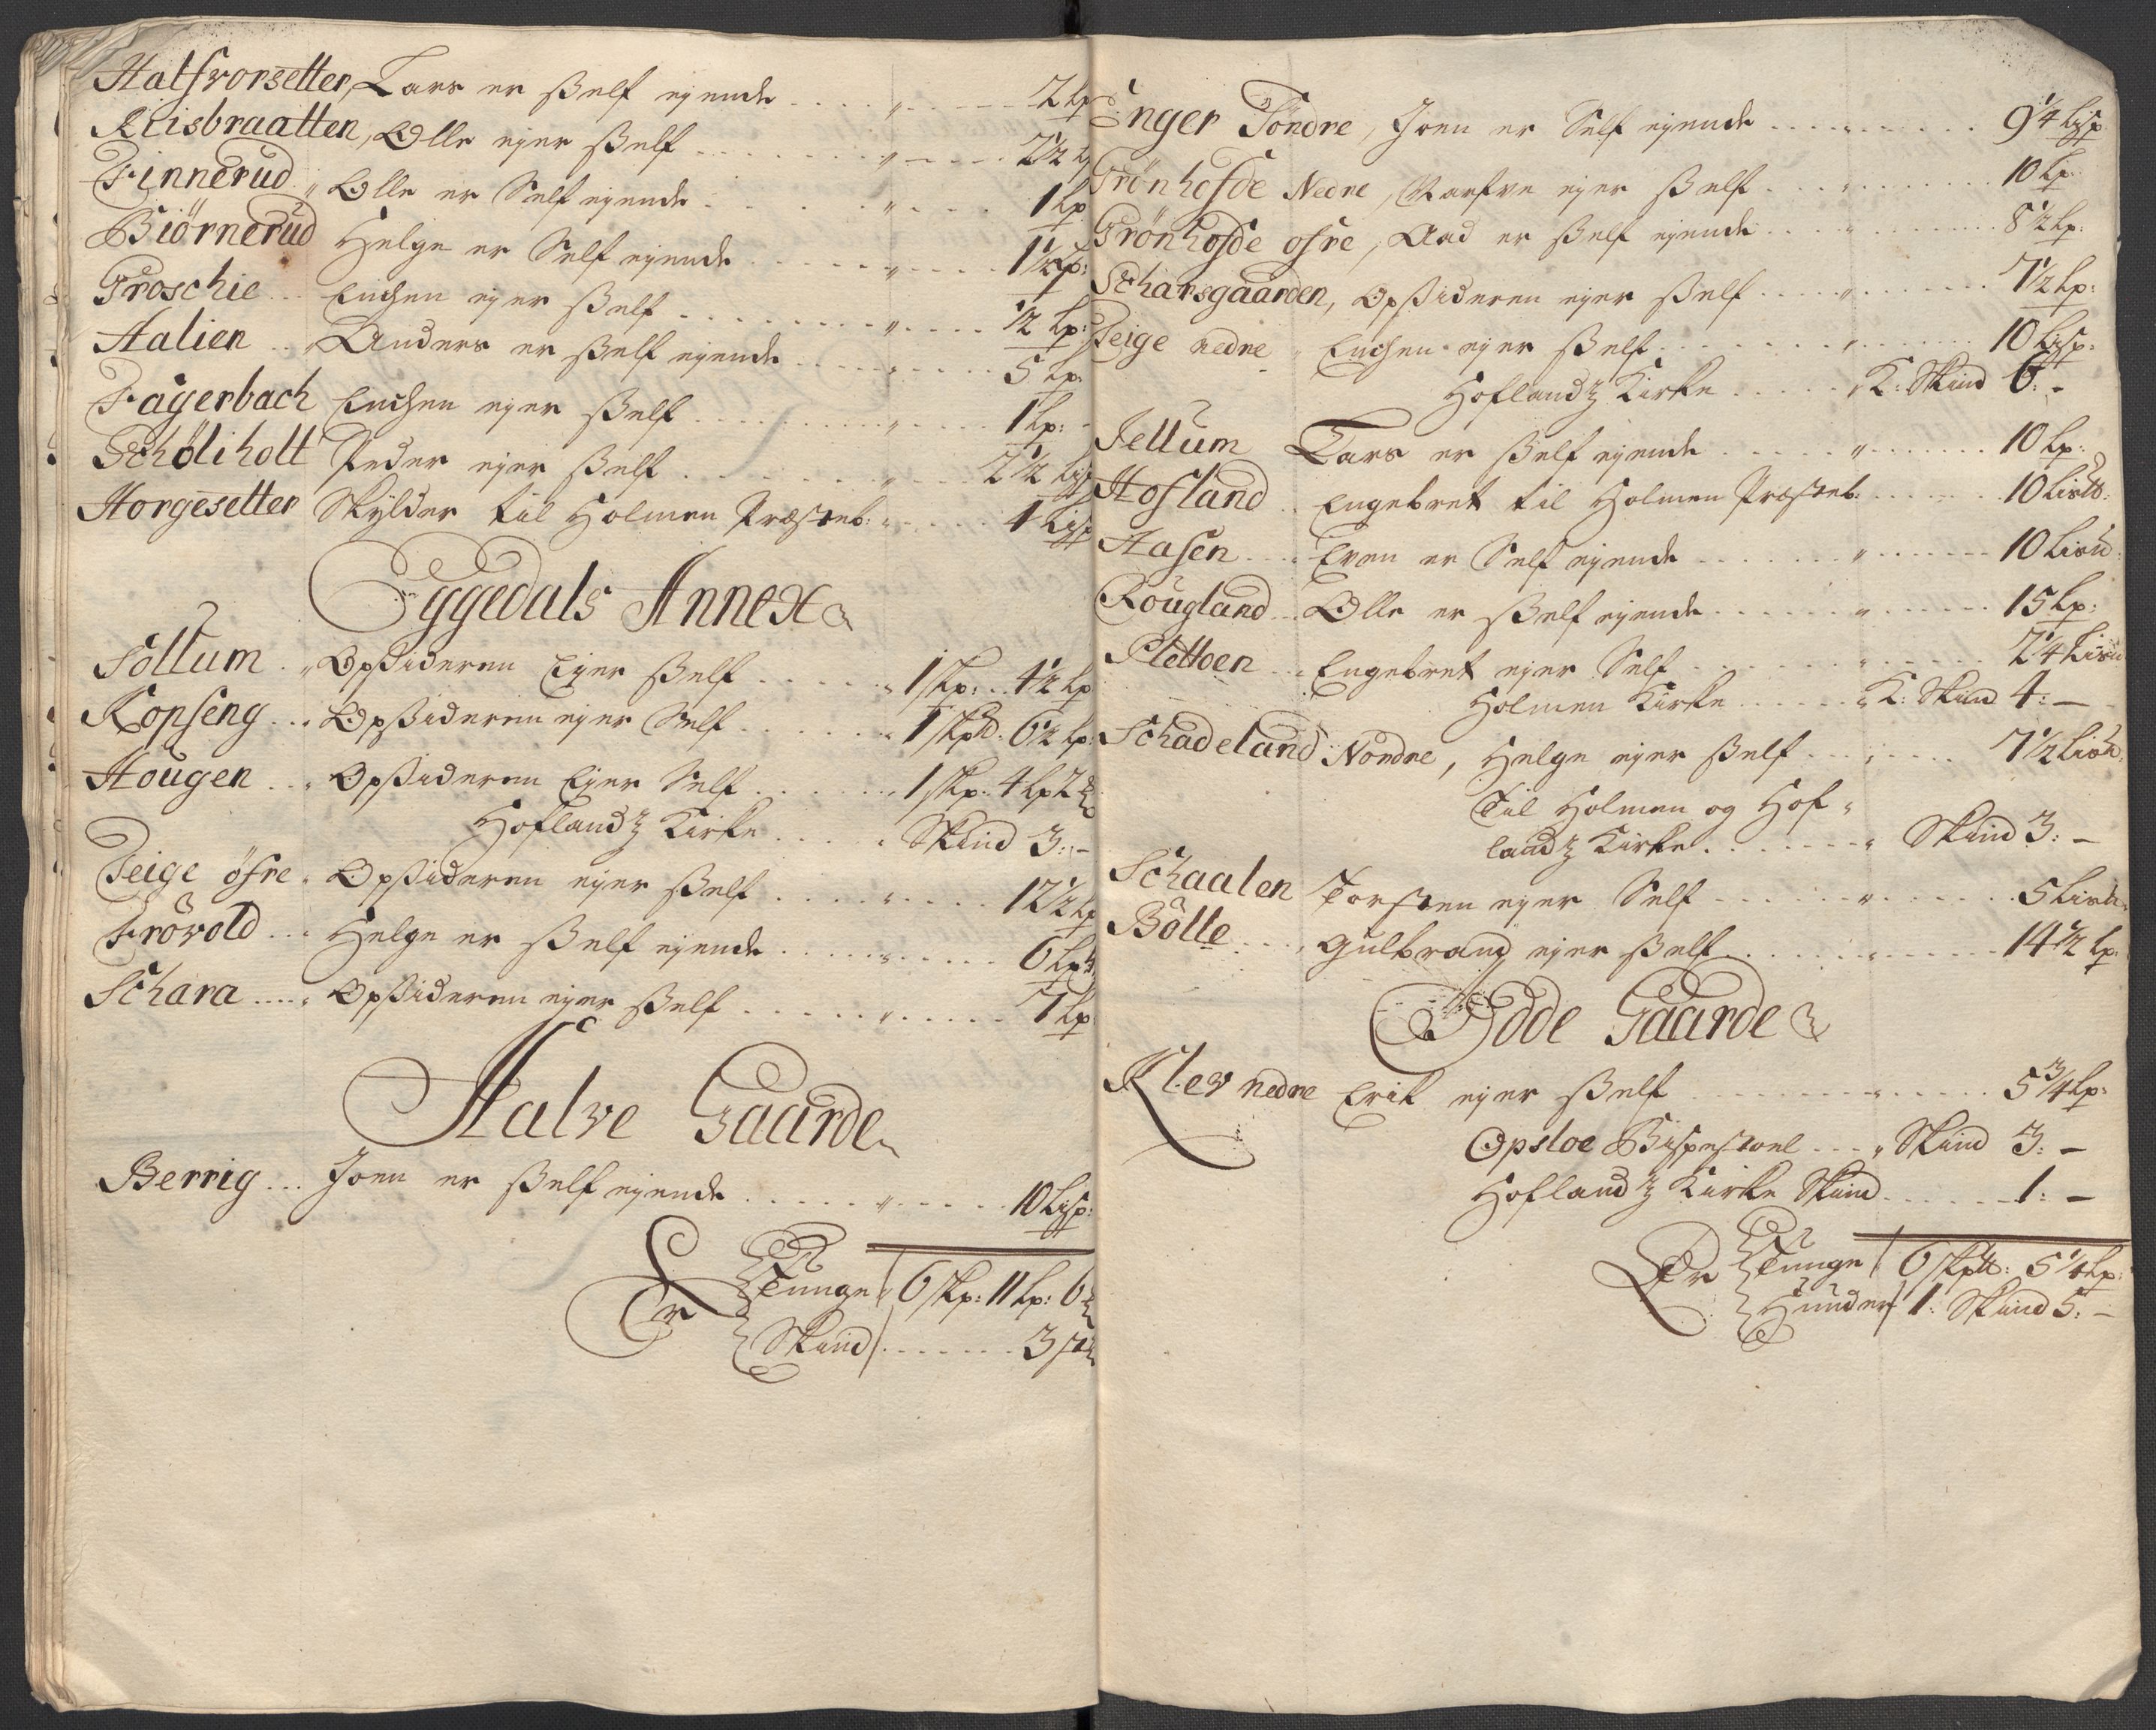 Halfvorsetter, Lars er Self ejende 2 Lp
Riisbraatten, Olle ejer Self 2½ L
Finnerud Olle er Self ejende 1 Lp
Biörnerud Helge er Self ejende 1½ Lp:
Groschie Enchen ejer Self ½ Lp:
Halien Anders er Self ejende 5 Lp:
Fagerbach Enchen ejer Self 1 Lp:
Schöliholt Peder ejer Self 2½ Lisp
Horgesetter Skylder til Holmen Præsteb: 1 Lisp
Eggedals Annex
Sollum Opsideren Ejer Self 1 skp: 4½ Lp
Kopseng Opsideren ejer Self 1 skpd. 6½ Lp:
Hougen Opsideren Ejer Self 1 skp: 4 Lp 2
Hoflandz Kirke Skind 3: -
Teige öfre Opsideren ejer Self 12½ Lp
Frövold Helge er Self ejende 6 Lp
Schara Opsideren ejer Self 7 Lp
Halve Gaarde
Berrig Joen er Self ejende 10 Lisp:
Er Tunge 6 skp: 11 Lp: 6
Skind 3
Enger Söndre, Joen er Self ejende 9¼ Lisp
Grönhofde Nedre, Narfve ejer Self 10 Lp
Grönhofde ofre, Aad er Self ejende 8½ Lp:
Scharsgaarden, Opsideren ejer Self 7½ Lp:
Teige nedre Enchen ejer Self 10 Lisp:
Hoflandz Kirke K: Skind 6: -
Jellum Lars er Self ejende 10 Lp:
Hofland Engebret til Holmen Præsteb: 10 Lispd:
Aasen Even er Self ejende 10 Lispd
Rougland Olle er Self ejende 15 Lp:
Slettoen Engebret ejer Self 2¼ Lispd
Holmen Kirke K: Skind 4: -
Schadeland Nordre, Helge ejer Self 7½ Lispd
Til Holmen og Hof-
landz Kirke Skind 3: -
Schaalen Torsten ejer Self 5 Lispd
Bölle Gulbrand ejer Self 14½ Lp:
Ödde Gaarde
Klev nedre Erik ejer Self 5¾ Lp:
Opsloe Bispestoel Skind 3: -
Hoflandz Kirke Skind 1: -
Er Tunge 6 Skpd: 5¼ Lp:
Huuder 1: Skind 5: -